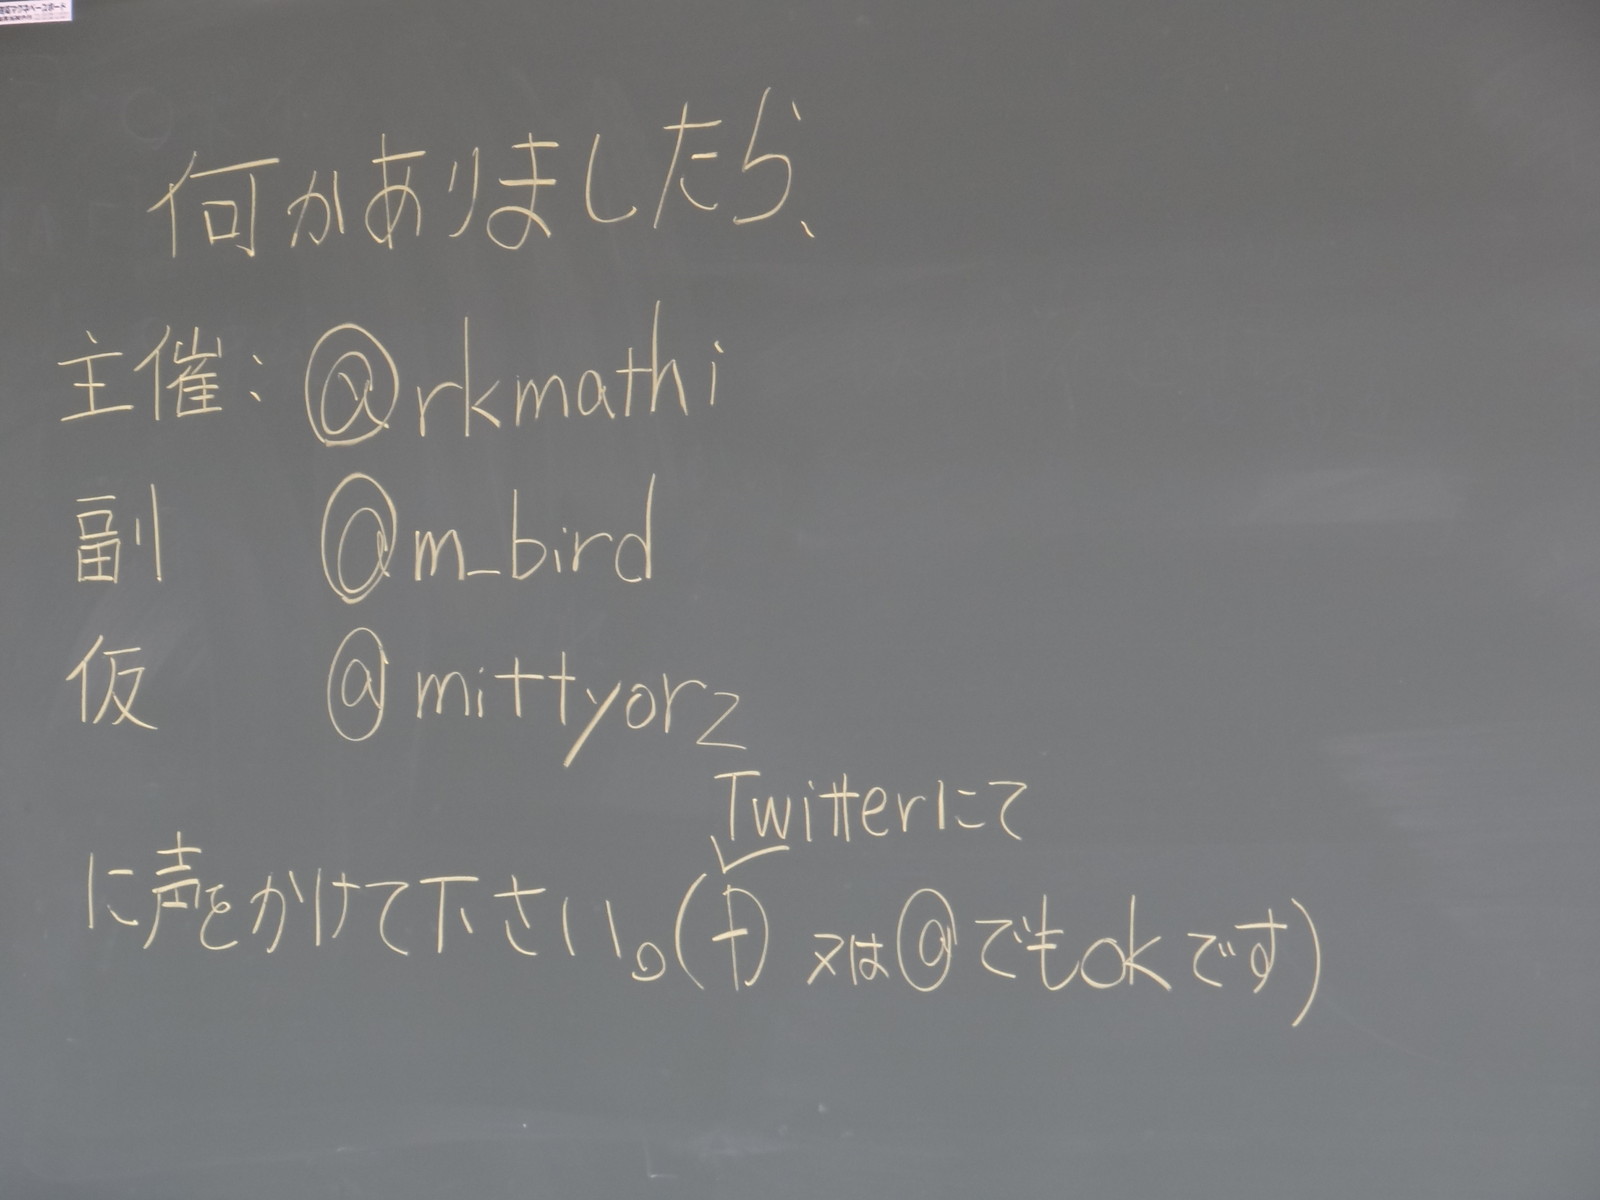 何かありましたら、
主催: @rkmathi
副 @m_bird
仮 @mittyorz
Twitterにて
に声をかけて下さい。(D 又は@でもokです)